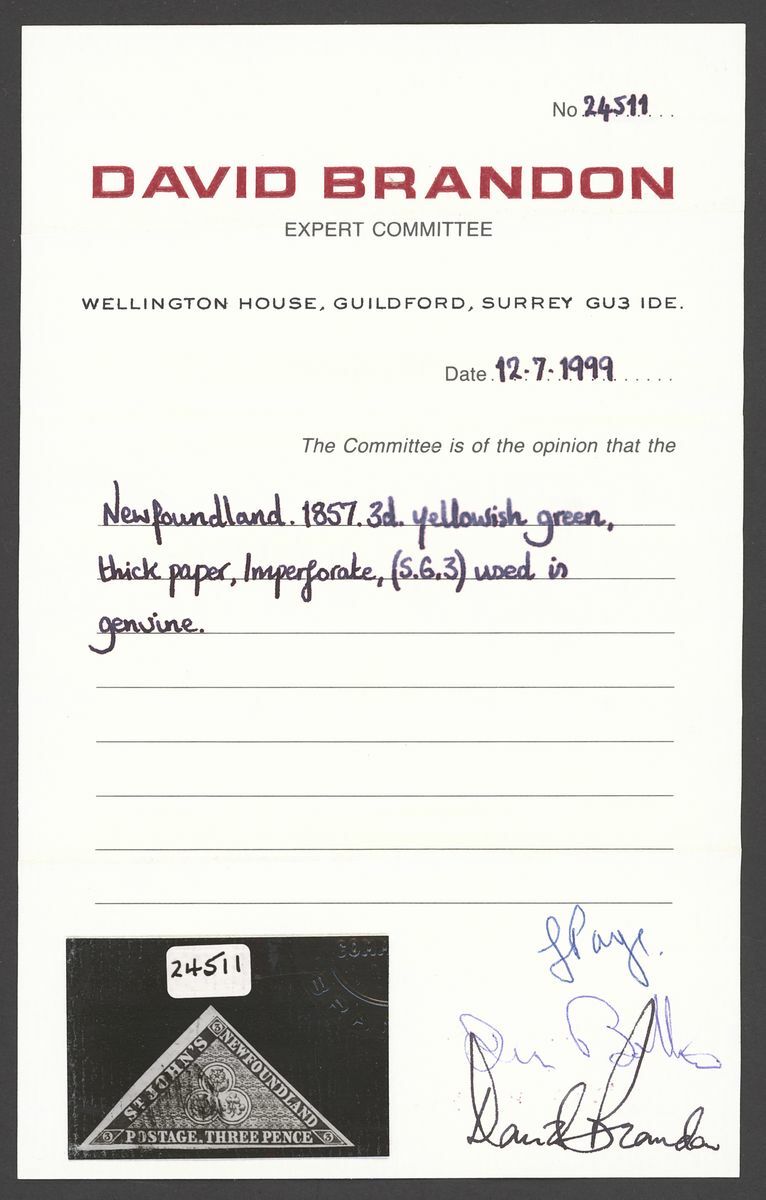 No 24511
DAVID BRANDON
EXPERT COMMITTEE
WELLINGTON HOUSE, GUILDFORD, SURREY GU3 IDE.
Date 12.7.1999
The Committee is of the opinion that the
Newfoundland. 1857. 3d. yellowish green,
thick paper, Imperforate, (S.G.3) used is
genuine.
24511
3
ST JOHN'S
NEWFOUNDLAND
3 POSTAGE. THREE PENCE 3
David Brandon